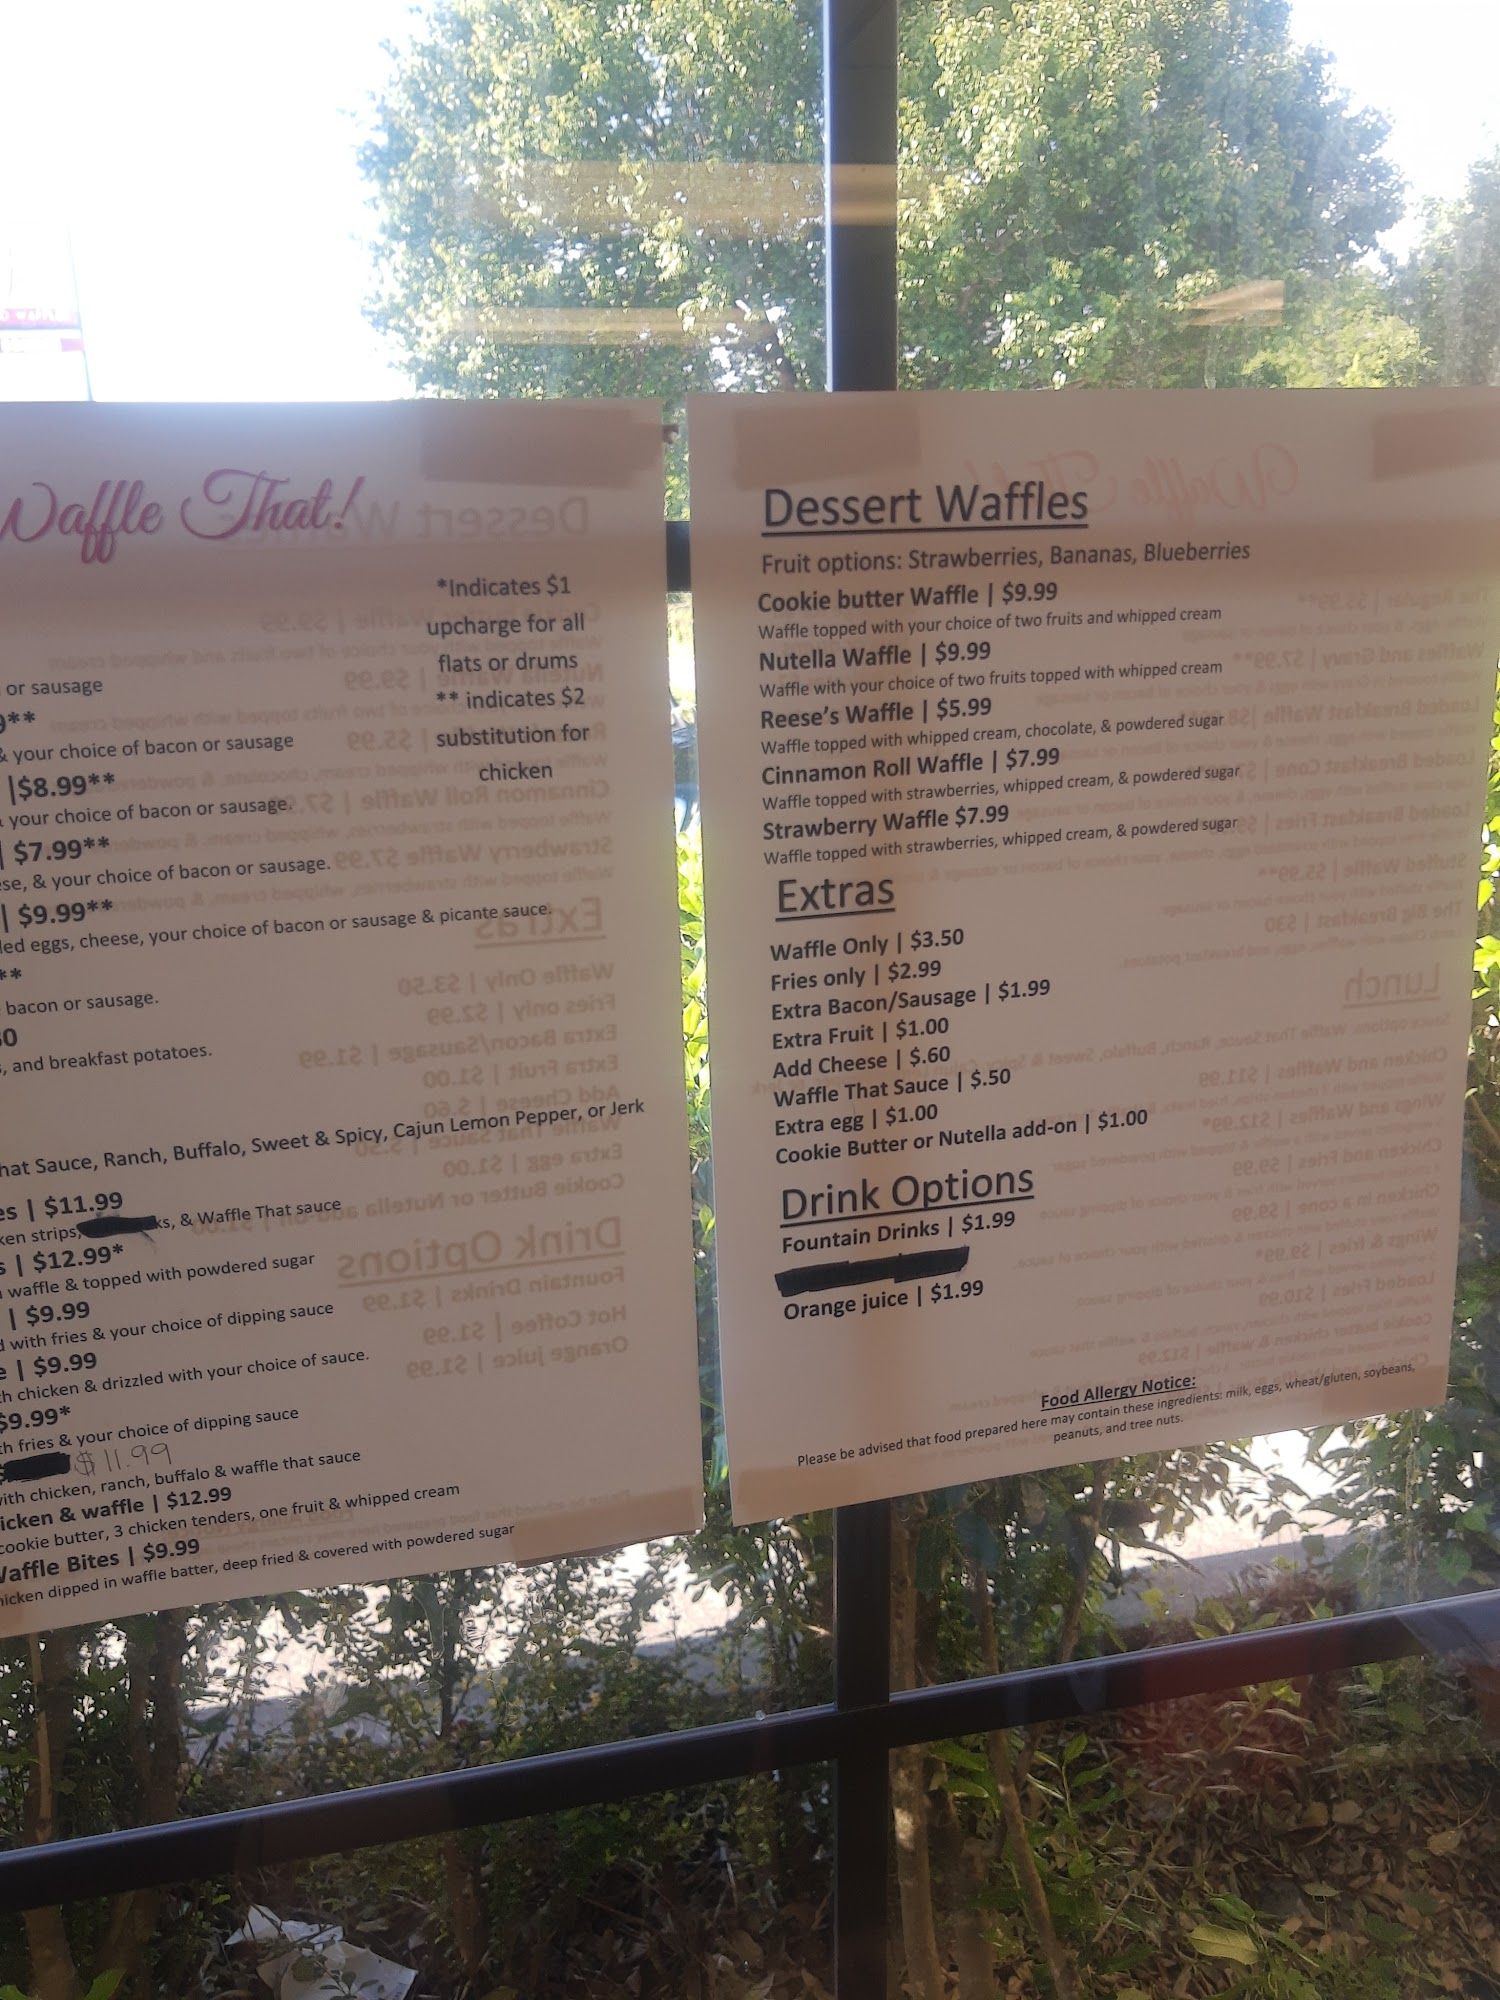 Waffle That!
*Indicates $1
upcharge for all
flats or drums
** indicates $2
substitution for
chicken
or sausage
9**
& your choice of bacon or sausage
|$8.99**
& your choice of bacon or sausage.
| $7.99**
& your choice of bacon or sausage.
| $9.99**
eggs, cheese, your choice of bacon or sausage & picante sauce.
**
bacon or sausage.
, and breakfast potatoes.
Sauce, Ranch, Buffalo, Sweet & Spicy, Cajun Lemon Pepper, or Jerk
| $11.99
strips, & Waffle That sauce
| $12.99*
waffle & topped with powdered sugar
| $9.99
with fries & your choice of dipping sauce
| $9.99
chicken & drizzled with your choice of sauce.
$9.99*
fries & your choice of dipping sauce
$11.99
with chicken, ranch, buffalo & waffle that sauce
& waffle | $12.99
cookie butter, 3 chicken tenders, one fruit & whipped cream
Waffle Bites | $9.99
dipped in waffle batter, deep fried & covered with powdered sugar
Dessert Waffles
Fruit options: Strawberries, Bananas, Blueberries
Cookie butter Waffle | $9.99
Waffle topped with your choice of two fruits and whipped cream
Nutella Waffle | $9.99
Waffle with your choice of two fruits topped with whipped cream
Reese's Waffle | $5.99
Waffle topped with whipped cream, chocolate, & powdered sugar
Cinnamon Roll Waffle | $7.99
Waffle topped with strawberries, whipped cream, & powdered sugar
Strawberry Waffle $7.99
Waffle topped with strawberries, whipped cream, & powdered sugar
Extras
Waffle Only | $3.50
Fries only | $2.99
Extra Bacon/Sausage | $1.99
Extra Fruit | $1.00
Add Cheese | $.60
Waffle That Sauce | $.50
Extra egg | $1.00
Cookie Butter or Nutella add-on | $1.00
Drink Options
Fountain Drinks | $1.99
Orange juice | $1.99
Food Allergy Notice:
Please be advised that food prepared here may contain these ingredients: milk, eggs, wheat/gluten, soybeans,
peanuts, and tree nuts.